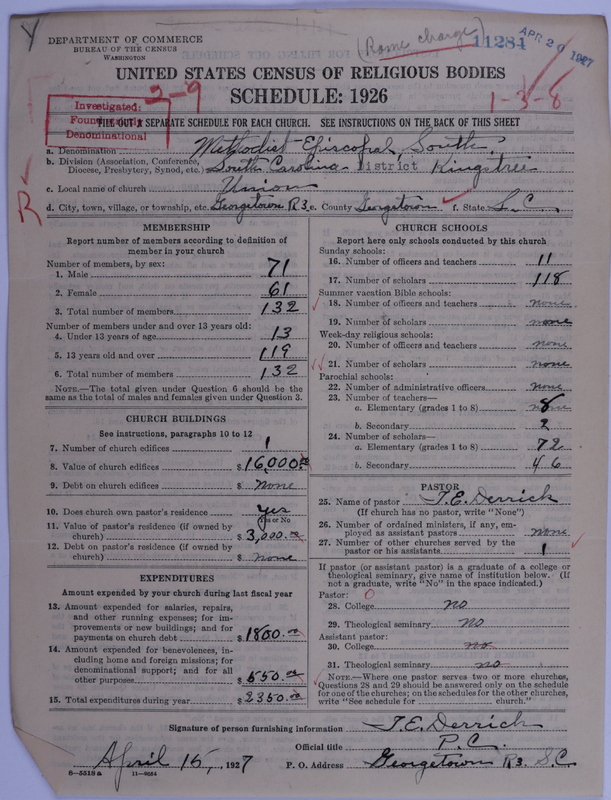 (Rome charge) 11284 APR 20 1927
DEPARTMENT OF COMMERCE
BUREAU OF THE CENSUS
WASHINGTON
UNITED STATES CENSUS OF RELIGIOUS BODIES
SCHEDULE: 1926
2-9
1-3-8
Investigated:
Found
Denominational
R
FILL OUT A SEPARATE SCHEDULE FOR EACH CHURCH. SEE INSTRUCTIONS ON THE BACK OF THIS SHEET
a. Denomination Methodist Episcopal, South.
b. Division (Association, Conference, Diocese, Presbytery, Synod, etc.) South Carolina District Kingstree
c. Local name of church Union
d. City, town, village, or township, etc. Georgetown R3 e. County Georgetown f. State S.C.
MEMBERSHIP
Report number of members according to definition of
member in your church
Number of members, by sex:
1. Male 71
2. Female 61
3. Total number of members 132
Number of members under and over 13 years old:
4. Under 13 years of age 13
5. 13 years old and over 119
6. Total number of members 132
NOTE.—The total given under Question 6 should be the
same as the total of males and females given under Question 3.
CHURCH BUILDINGS
See instructions, paragraphs 10 to 12
7. Number of church edifices 1
8. Value of church edifices $ 16,000.00
9. Debt on church edifices $ none
10. Does church own pastor's residence yes
(Yes or No)
11. Value of pastor's residence (if owned by
church) $ 3,000.00
12. Debt on pastor's residence (if owned by
church) $ none
EXPENDITURES
Amount expended by your church during last fiscal year
13. Amount expended for salaries, repairs,
and other running expenses; for im-
provements or new buildings; and for
payments on church debt $ 1800.00
14. Amount expended for benevolences, in-
cluding home and foreign missions; for
denominational support; and for all
other purposes $ 550.00
15. Total expenditures during year $ 2350.00
CHURCH SCHOOLS
Report here only schools conducted by this church
Sunday schools:
16. Number of officers and teachers 11
17. Number of scholars 118
Summer vacation Bible schools:
18. Number of officers and teachers none
19. Number of scholars none
Week-day religious schools:
20. Number of officers and teachers none
21. Number of scholars none
Parochial schools:
22. Number of administrative officers none
23. Number of teachers—
a. Elementary (grades 1 to 8) 8
b. Secondary 2
24. Number of scholars—
a. Elementary (grades 1 to 8) 72
b. Secondary 46
PASTOR
25. Name of pastor T.E. Derrick
(If church has no pastor, write "None")
26. Number of ordained ministers, if any, em-
ployed as assistant pastors none
27. Number of other churches served by the
pastor or his assistants 1
If pastor (or assistant pastor) is a graduate of a college or
theological seminary, give name of institution below. (If
not a graduate, write "No" in the space indicated.)
Pastor: 0
28. College no
29. Theological seminary no
Assistant pastor:
30. College no
31. Theological seminary no
NOTE.—Where one pastor serves two or more churches,
Questions 28 and 29 should be answered only on the schedule
for one of the churches; on the schedules for the other churches,
write "See schedule for church."
Signature of person furnishing information T.E. Derrick
Official title P.C.
April 15, 1927 P. O. Address Georgetown R3. S.C.
8—5518 a 11—9084